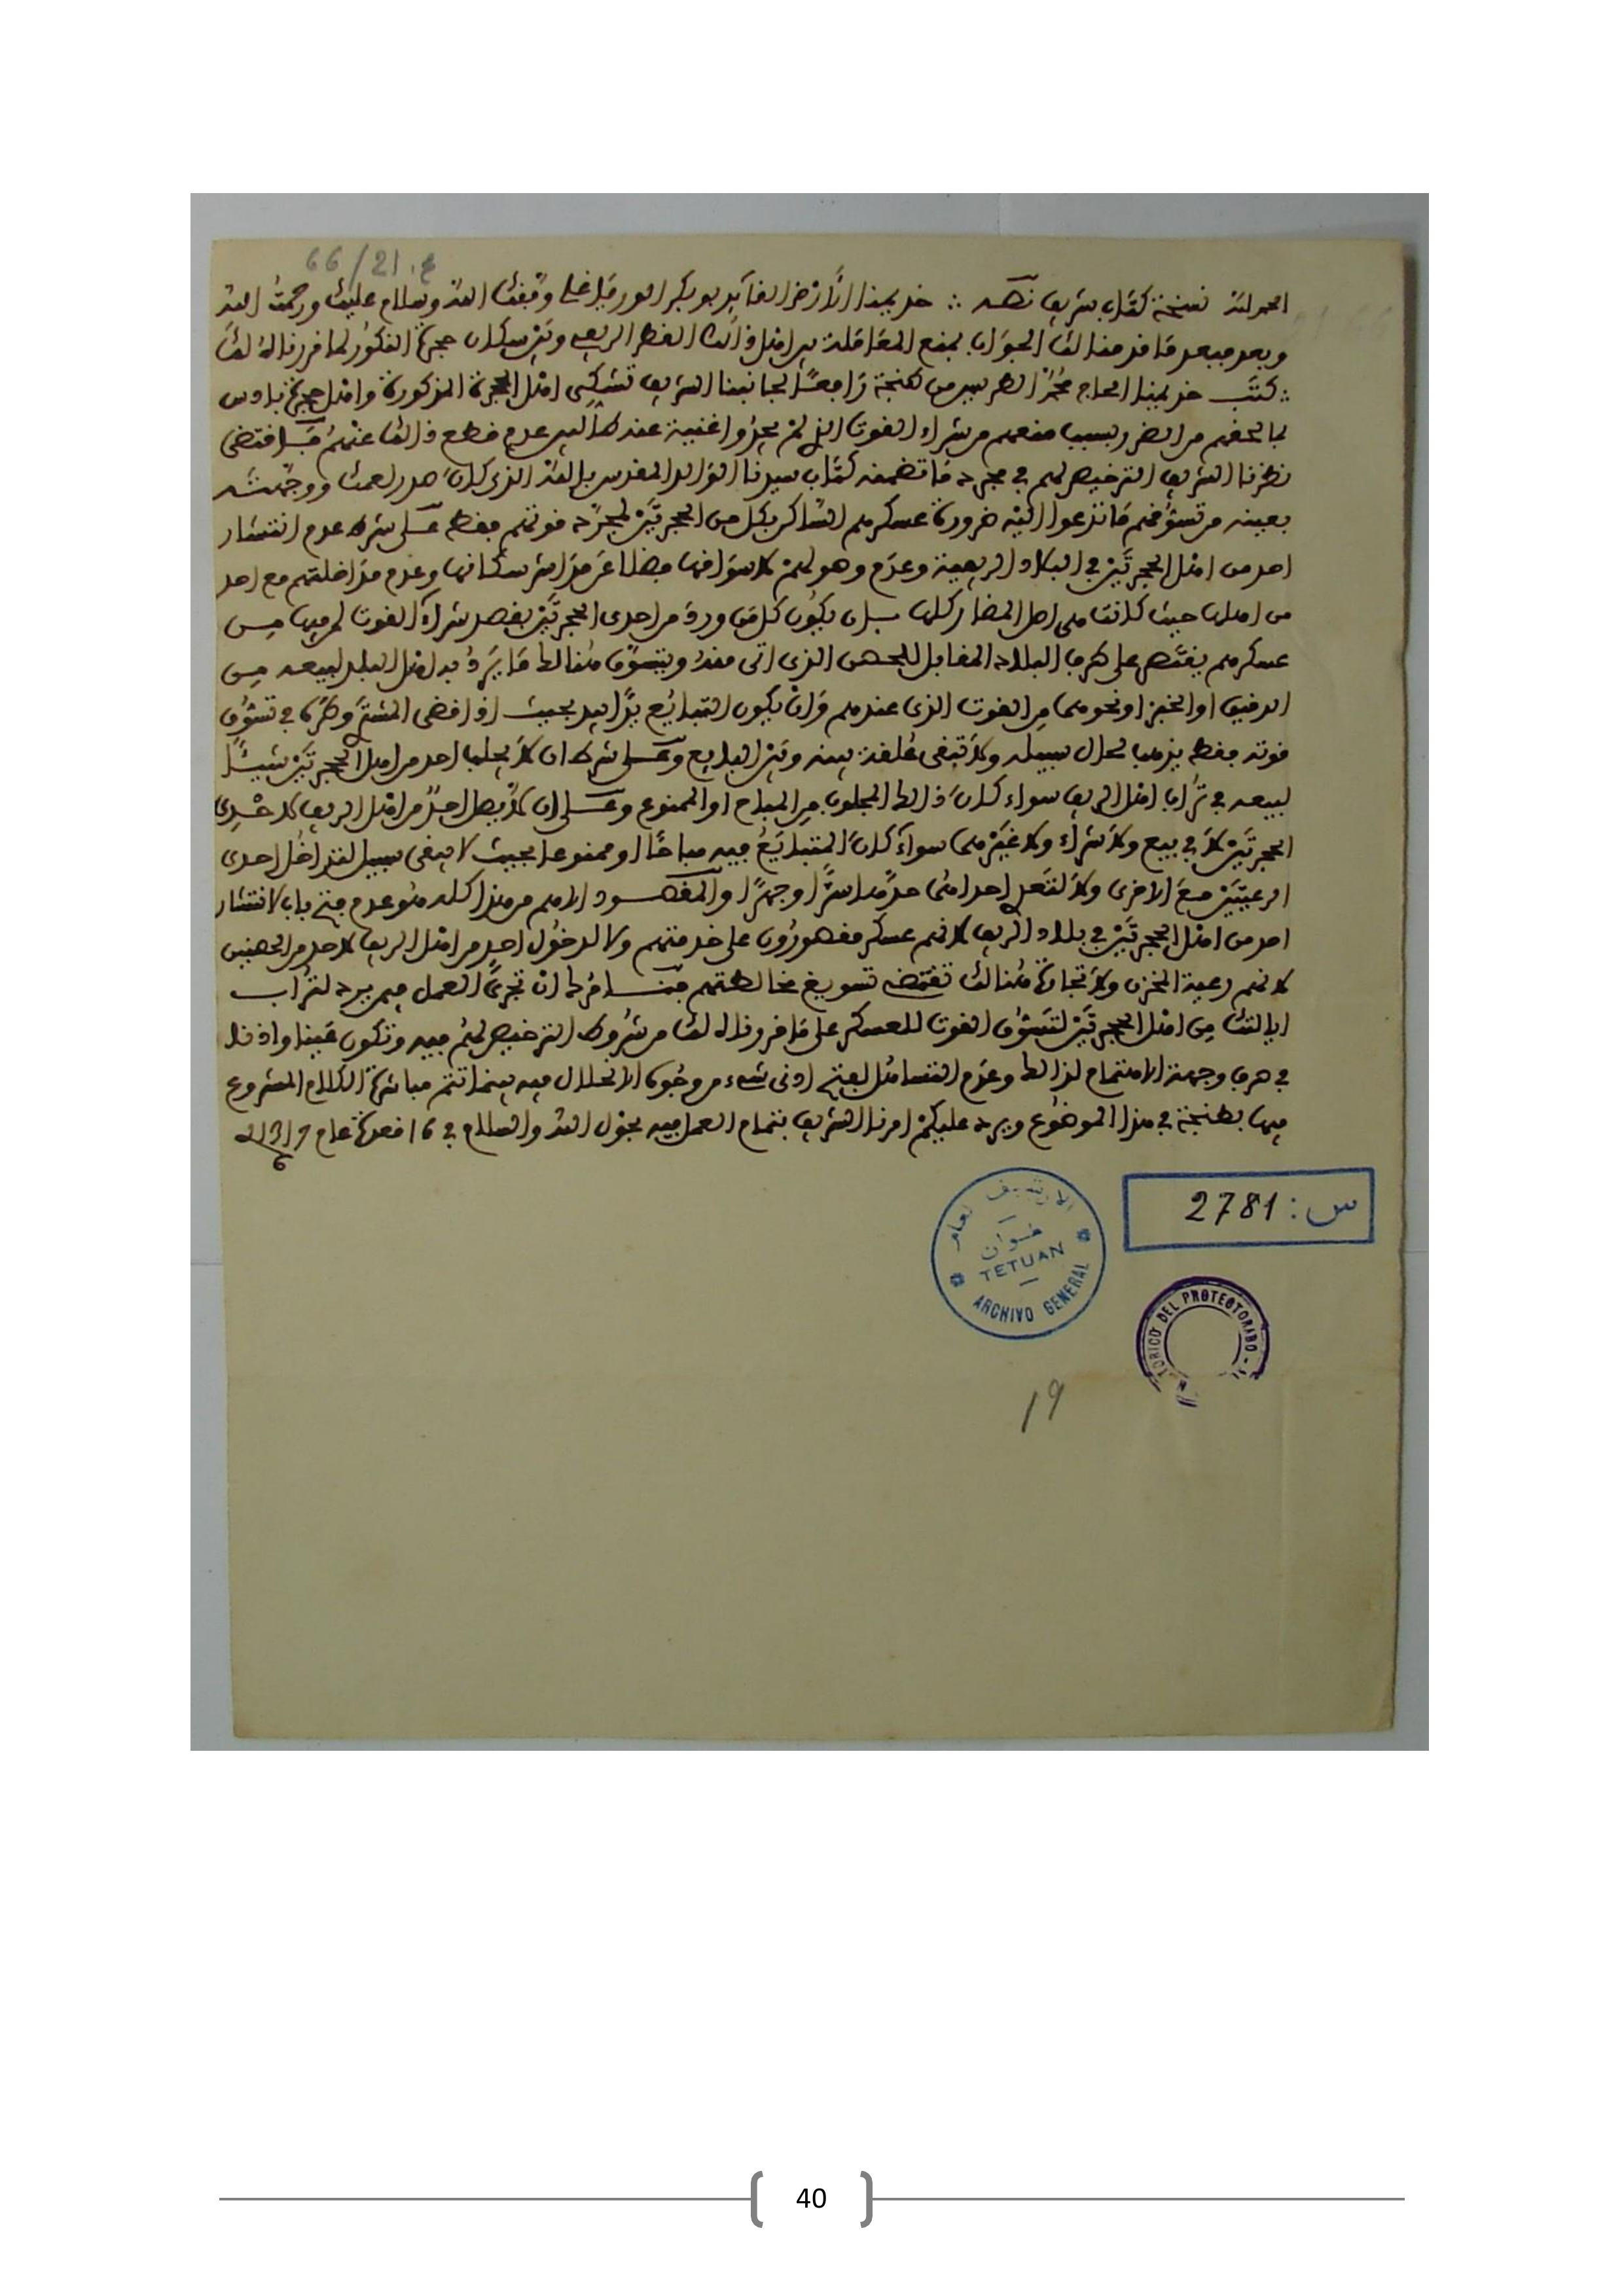 66/21.ع
الحمد لله نسخة كتاب شريف نصه :. خديمنا الارضى القائد بوبكر الورياغلي وفقك الله وسلام عليك ورحمة الله
وبعد فبعد ما قدمنا لك الجواب بمنع المعاملة بين اهل ذلك القطر الريفي وبين سكان حجرة النكور لما قررناه لك
:. كتب خديمنا الحاج محمد الطريس من طنجة رافعا لجانبنا الشريف تشكي اهل الحجرة المذكورة واهل حجرة بادس
بما لحقهم من الضرر بسبب منعهم من شراء القوت الذي لم يجدوا غنية عنه طالبين عدم قطع ذلك عنهم فاقتضى
نظرنا الشريف الترخيص لهم في مجرد ما تضمنه كتاب سيدنا الوالد المقدس بالله الذي كان صدر لعمك ووجهت
بعينه من تسوقهم ما تدعوا اليه ضرورة عسكرهم الساكن بكل من الحجرتين لمجرد قوتهم فقط على شرط عدم انتشار
احد من اهل الحجرتين في البلاد الريفية وعدم وصولهم لاسواقها فضلا عن مداشر سكانها وعدم مداخلتهم مع احد
من اهلها حيث كانت هي اصل المضار كلها بان يكون كل من ورد من احدى الحجرتين بقصد شراء القوت لمن فيها من
عسكرهم يقتصر على طرف البلاد المقابل للحصن الذي اتى منه ويتسوق هنالك ما يرد به اهل البلد لبيعه من
الدقيق او الخبز او نحوهما من القوت الذي عندهم وان يكون التبايع يدا بيد بحيث اذا قضى المشتري وطره في تسوق
قوته فقط يذهب لحال سبيله ولا تبقى علقة بينه وبين البايع وعلى شرط ان لا يجلب احد من اهل الحجرتين شيئا
لبيعه في تراب اهل الريف سواء كان ذلك المجلوب من المباح او الممنوع وعلى ان لا يصل احد من اهل الريف لاحدى
الحجرتين لا في بيع ولا شراء ولا غيرهما سواء كان المتبايع فيه مباحا او ممنوعا بحيث لا يبقى سبيل لتداخل احدى
الرعيتين مع الاخرى ولا لتعدي احداهما حدها سرا وجهرا والمقصود الاهم من هذا كله هو عدم فتح باب لانتشار
احد من اهل الحجرتين في بلاد الريف لانهم عسكر مقصورون على خدمتهم ولا لدخول احد من اهل الريف لاحد من الحصنين
لانهم رعية المخزن ولا تجارة هنالك تقتضي تسويغ مخالطتهم فنامرك ان تجري العمل فيمن يرد لتراب
ايالتك من اهل الحجرتين لتسوق القوت للعسكر على ما قررناه لك من شروط الترخيص لهم فيه وتكون عينا واذنا
في صرف وجهة الاهتمام لذلك وعدم التساهل لفتح ادنى شيء من وجوه الاخلال فيه بينما تتم مباشرة الكلام المشروع
فيها بطنجة في هذا الموضوع ويرد عليكم امرنا الشريف بتمام العمل فيه بحول الله والسلام في 16 قعدة عام 1312
س: 2781
الارشيف العام
تطوان
TETUAN
ARCHIVO GENERAL
TORICO DEL PROTECTORADO
19
40